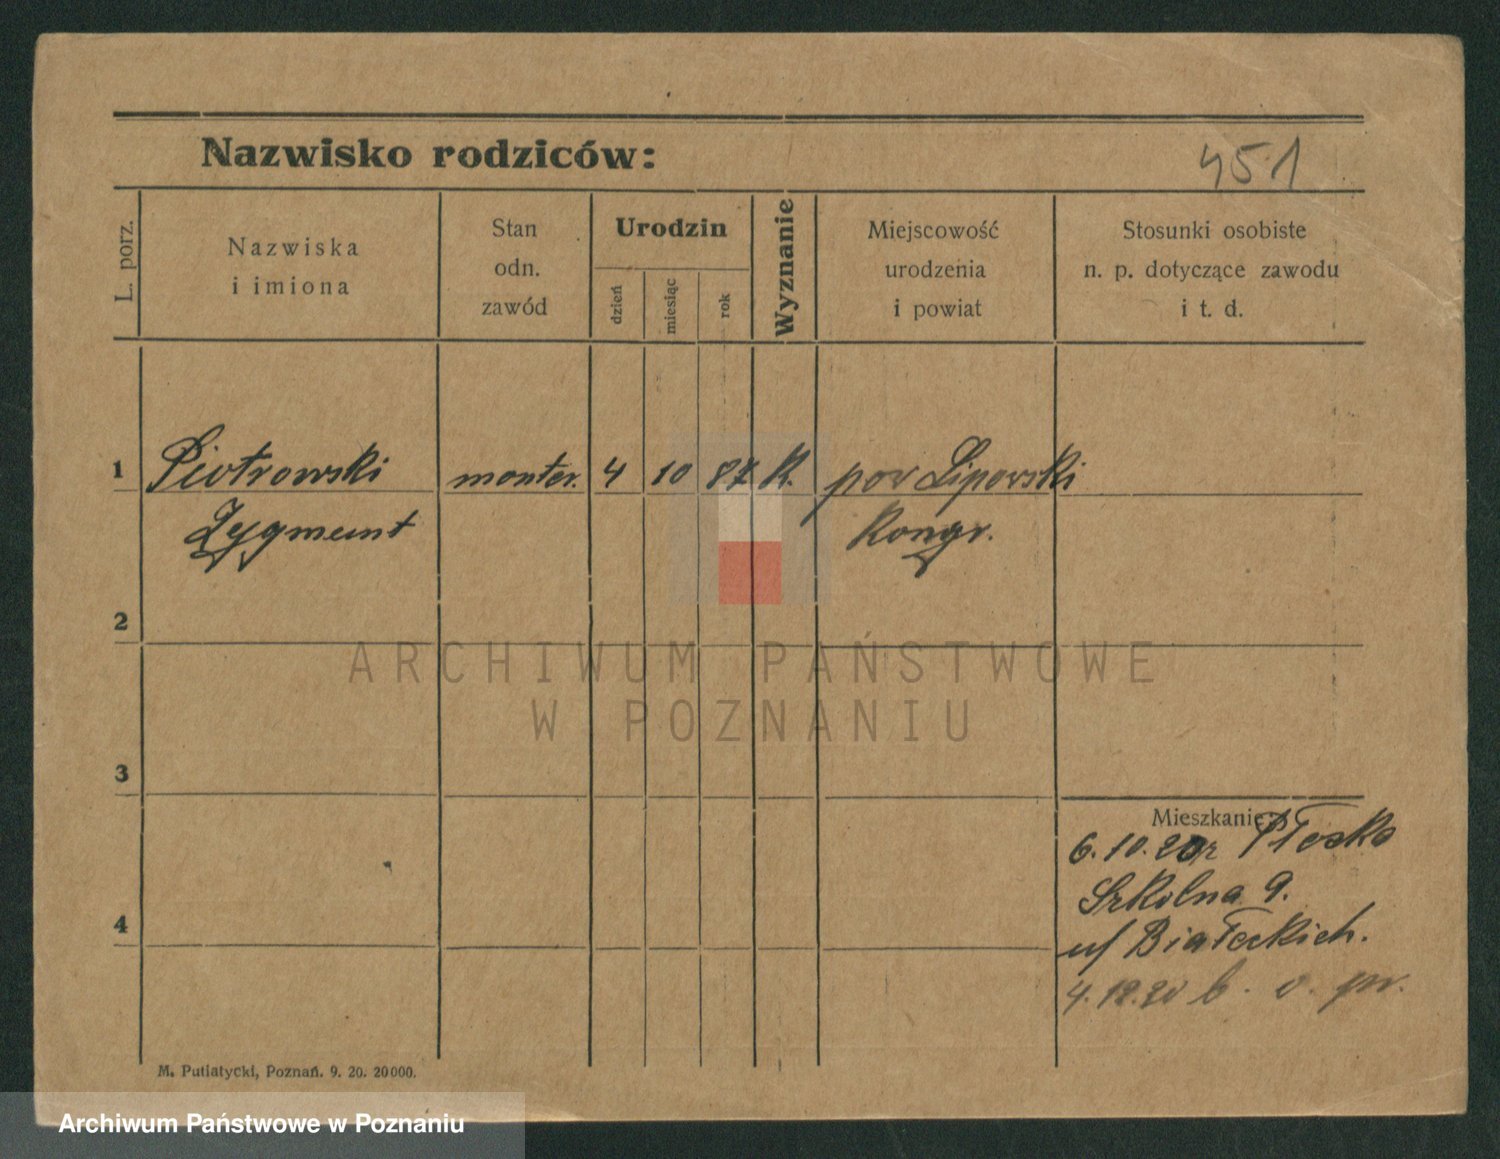 Nazwisko rodziców:
451
L. porz.
Nazwiska
i imiona
Stan
odn.
zawód
Urodzin
dzień
miesiąc
rok
Wyznanie
Miejscowość
urodzenia
i powiat
Stosunki osobiste
n. p. dotyczące zawodu
i t. d.
1 Piotrowski monter. 4 10 87 K. pow Lipowski
Zygmunt Kongr.
2
3
4
Mieszkanie:
6.10.20r
Szkolna 9.
u/ Białeckich.
4.12.20 b. o. pr.
M. Putiatycki, Poznań. 9. 20. 20000.
ARCHIWUM PAŃSTWOWE
W POZNANIU
Archiwum Państwowe w Poznaniu